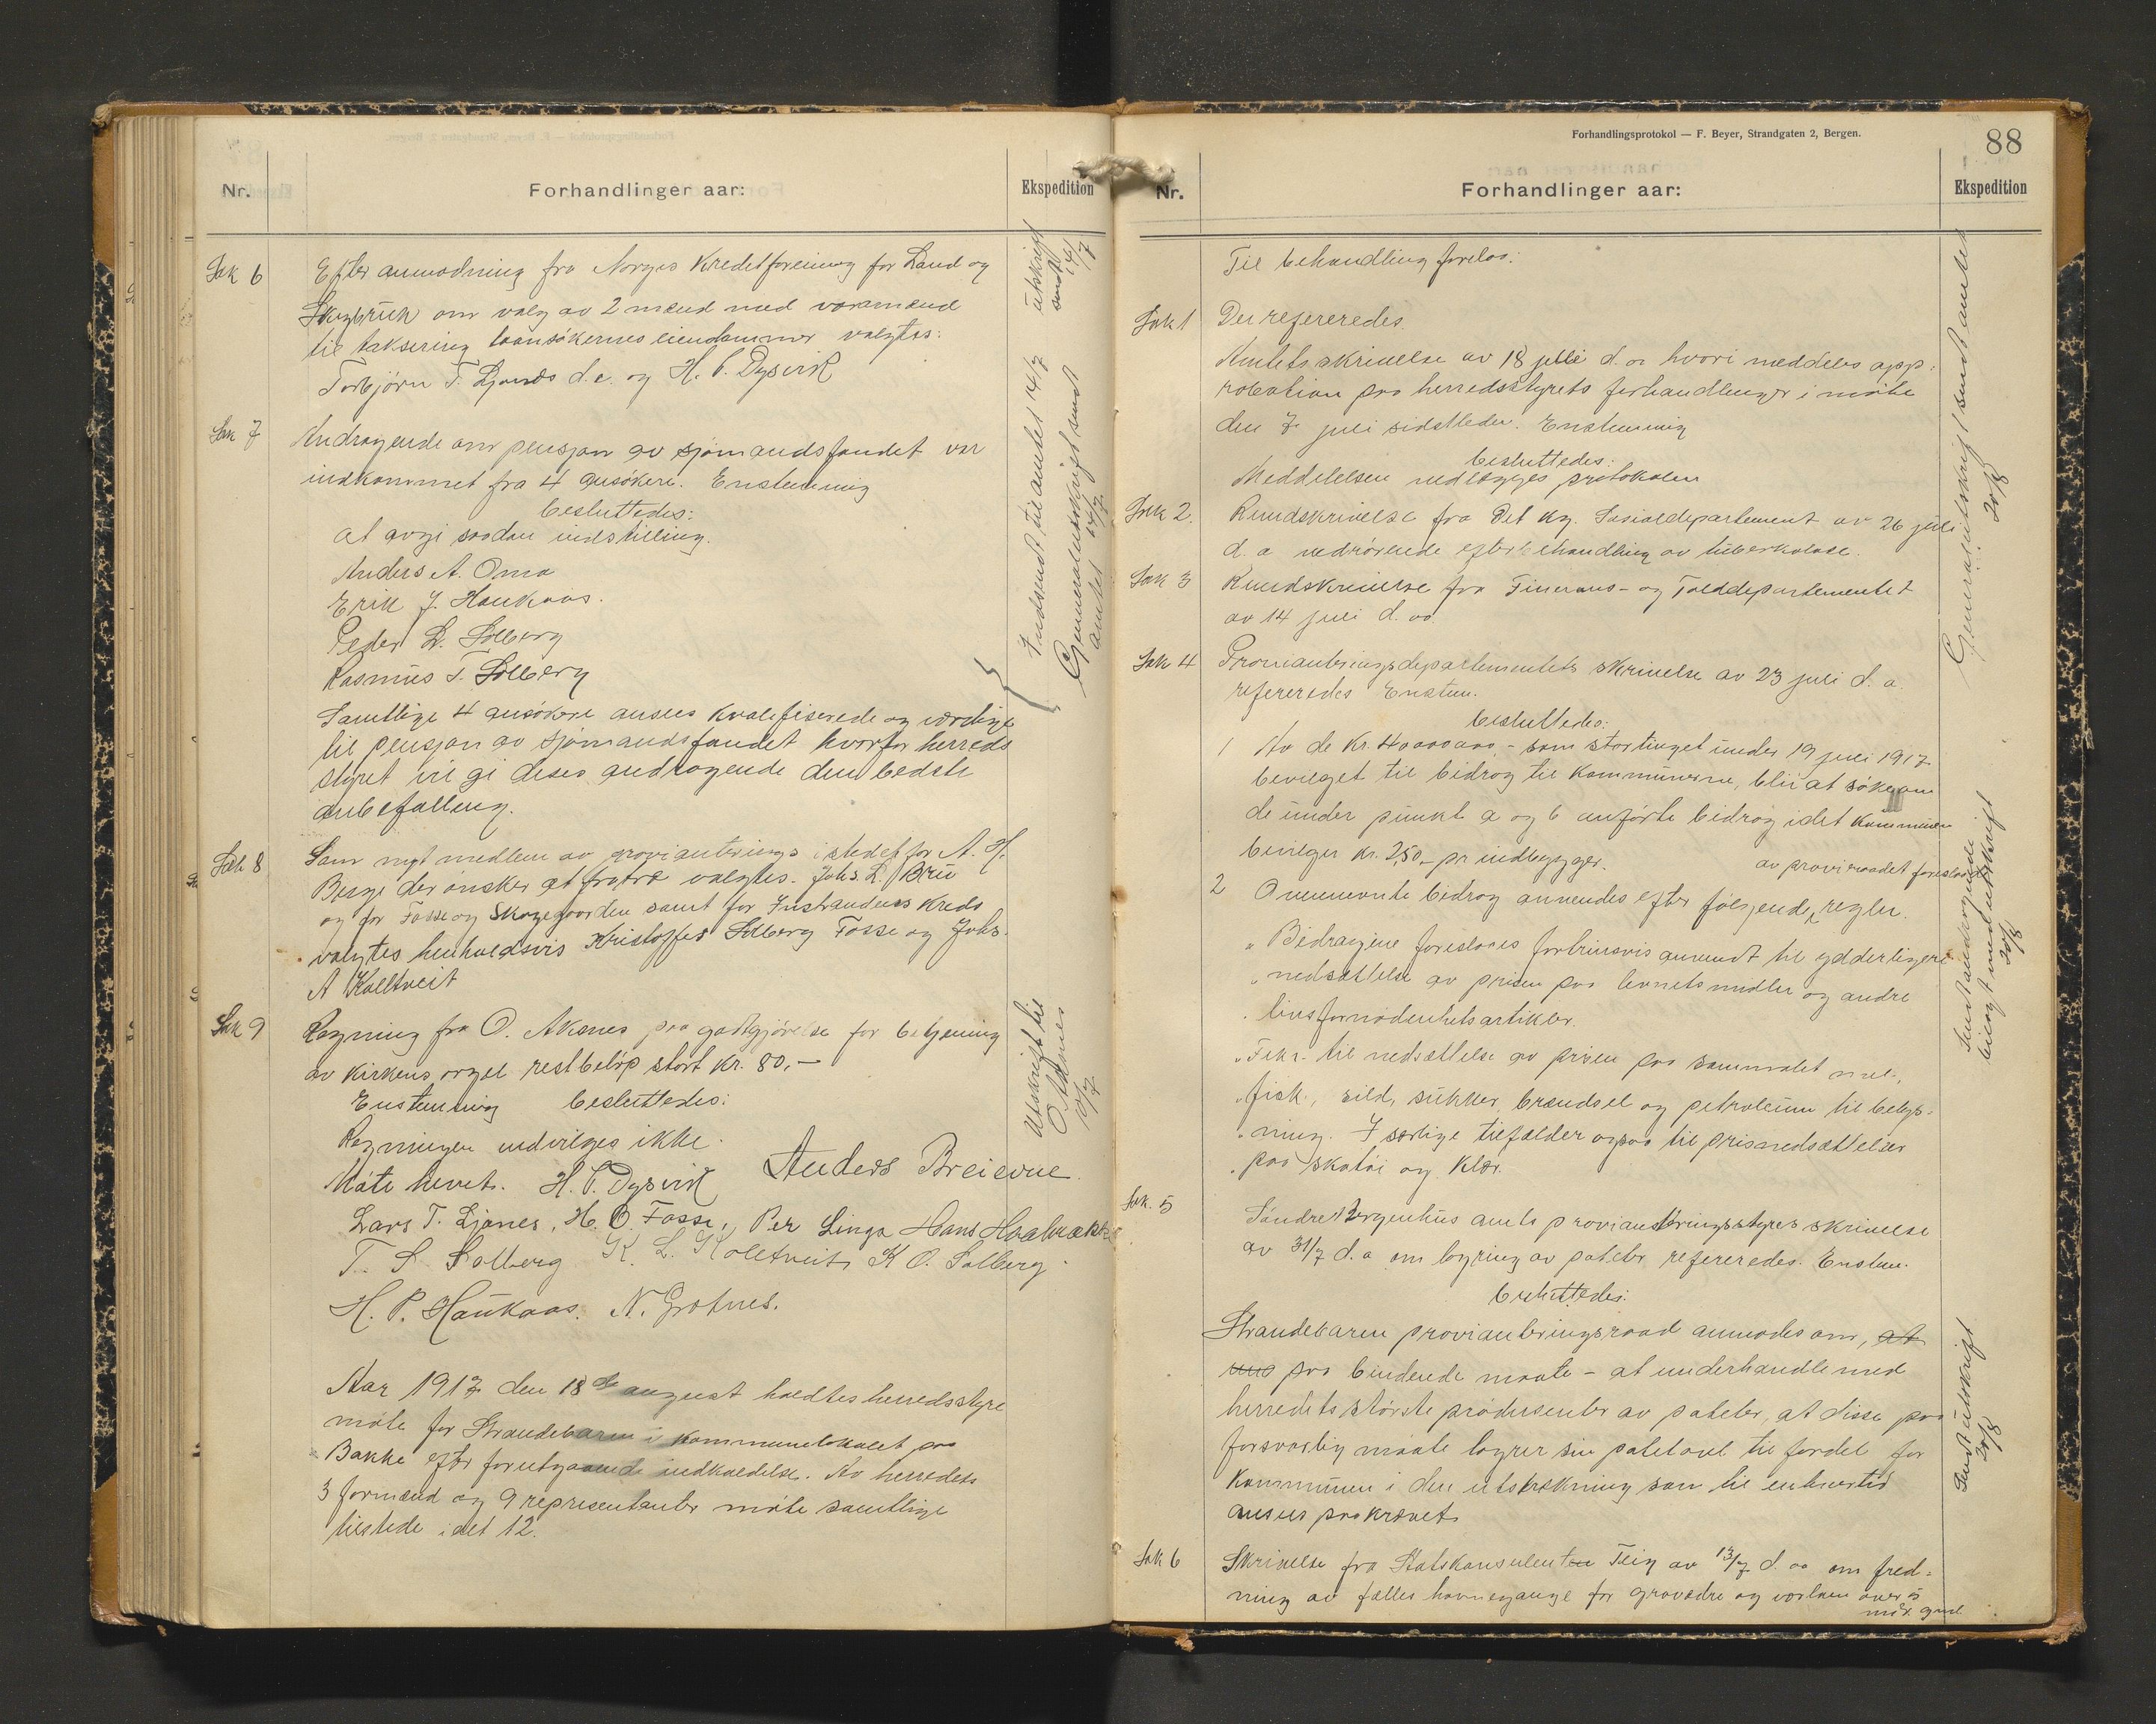 Nr.
Forhandlinger aar:
Ekspedition
Sak 6
Efter anmodning fra Norges Kreditforening for Land og
Skogbruk om valg av 2 mænd med varamænd
til taksering laansökernes eiendommer valgtes:
Torbjörn T. Ljones d.e. og H. P. Dysvik
utskrift
sendt
14/7
Sak 7
Andragende om pensjon av sjömandsfondet var
indkommet fra 4 ansökere. Enstemmig
besluttedes:
at avgi saadan indstilling.
Anders A. Oma
Erik J. Haukaas.
Peder L. Solberg
Rasmus T. Solberg
Samtlige 4 ansökere ansees kvalifiserede og værdige
til pensjon av sjömandsfondet hvorfor herreds
styret vil gi disses andragende den bedste
anbefalling.
Indsendt til amtet 14/7
Generalutskrift sendt
amtet 14/7
Sak 8
Som nyt medlem av provianterings istedet for A. H.
Berge der önsker at fratræ valgtes. Johs. L. Bru
og for Fosse og Skogegaarden samt for Instrandens kreds
valgtes henholdsvis Kristoffer Solberg Fosse og Johs.
A Kolltveit
Sak 9
Regning fra O. Aksnes paa godtgjörelse for betjening
av kirkens orgel restbelöp stort kr. 80,-
Enstemmig besluttedes:
Regningen indvilges ikke.
Utskrift til
O Aksnes
Möte hevet. H. P. Dysvik Anders Breievne.
Lars T. Ljones, H. O. Fosse, Per Linga Hans
T. S. Solberg K. L. Kolltveit K O. Solberg.
H. P. Haukaas. N. Grotnes.
Aar 1917 den 18de august holdtes herredsstyre
möte for Strandebarm i kommunelokalet paa
Bakke efter forutgaaende indkaldelse. Av herredets
3 formænd og 9 representanter möte samtlige
tilstede idet 12.
Forhandlingsprotokol — F. Beyer, Strandgaten 2, Bergen.
88
Nr.
Forhandlinger aar:
Ekspedition
Til behandling forelaa:
Sak 1
Der refereredes.
Amtets skrivelse av 18 juli d. a hvori meddeles app:
robation paa herredsstyrets forhandlinger i möte
den 7 juli sidstleden. Enstemmig
besluttedes:
Meddelelsen vedlægges protokolen
Sak 2.
Rundskrivelse fra Det kg. Sosialdepartement av 26 juli
d. a vedrörende efterbehandling av tuberkulose.
Sak 3
Rundskrivelse fra Finans- og Tolddepartementet
av 14 juli d. aa
Generalutskrift sendt amtet
20/8
Sak 4
Provianteringsdepartementets skrivelse av 23 juli d. a.
refereredes Enstem.
besluttedes:
1 Av de kr. 40000000,- som stortinget under 19 juli 1917
bevilget til bidrag til kommunerne, blir at söke om
de under punkt a og b anförte bidrag idet kommunen
bevilger kr. 2,50,- pr indbygger.
av proviraadet foreslaaede
2 Ommeldte bidrag anvendes efter fölgende regler.
„ Bidragene foreslaaes fortrinsvis anvendt til ydderligere
„ nedsættelse av prisen paa levnetsmidler og andre
„ livsfornödenhetsartikler.
„ F.eks. til nedsættelse av prisen paa sammalet mel,
„ fisk, sild, sukker, brændsel og petroleum til belys-
„ ning. I særlige tilfælder ogsaa til prisnedsættelser
„ paa skotöi og klær.
Sendt andragende
bilagt med utskrift
20/8
Sak. 5
Söndre Bergenhus amts provianteringsstyres skrivelse
av 31/7 d. a om lagring av poteter refereredes. Enstem.
besluttedes:
Strandebarm provianteringsraad anmodes om, at
paa bindende maate - at underhandle med
herredets störste produsenter av poteter, at disse paa
forsvarlig maate lagrer sin potetavl til fordel for
kommunen i den utstrækning som til enhver tid
ansees paakrævet
Sendt utskrift
20/8
Sak 6
Skrivelse fra Statskonsulenten Teig av 13/7 d. aa om fred-
ning av fælles havnegange for gravædre og værlam over 5
mdr. gml